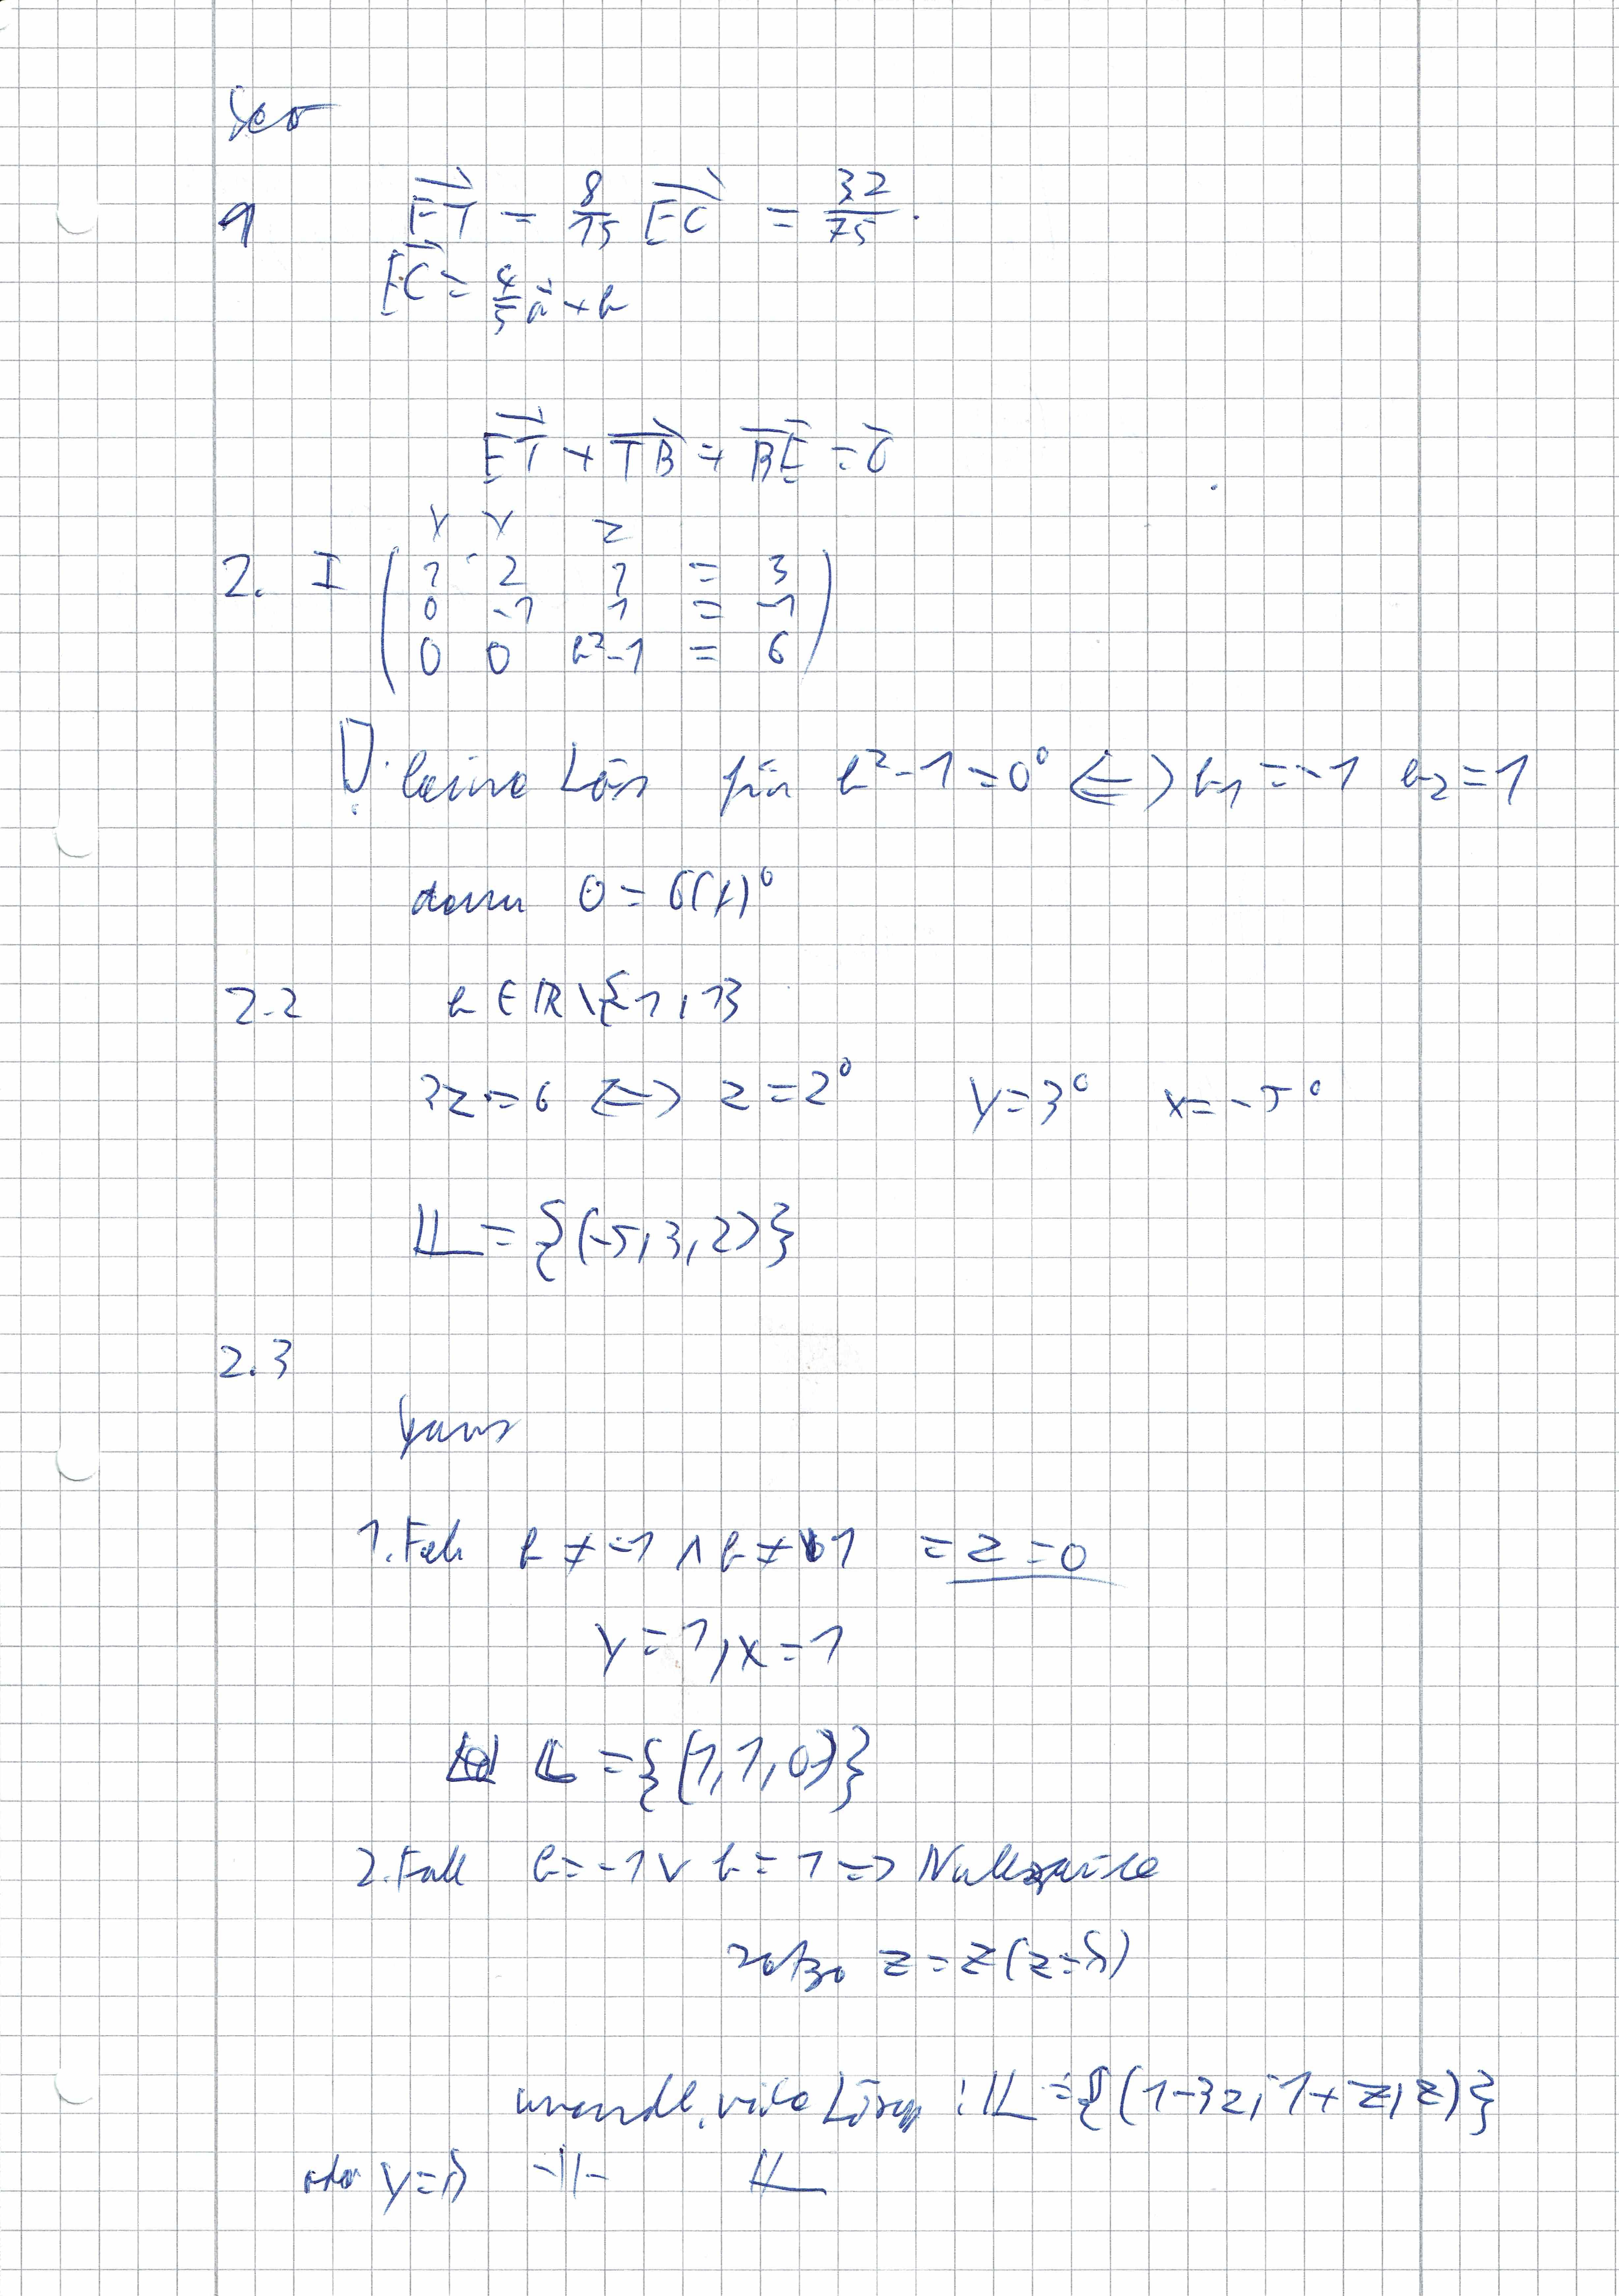 1 ET = 8/15 EC = 32/75 ·
EC = 4/5 a + b
ET + TB + BE = 0
x y z
2. I ( 1 2 1 = 3
0 -1 1 = -1
0 0 k²-1 = 6 )
D: keine Lös für k²-1=0 <=> k₁=-1 k₂=1
dann 0 = 6(f)
2.2 k ∈ ℝ\{-1,1}
3z = 6 <=> z = 2 y = 3 x = -5
𝕃 = {(-5,3,2)}
2.3
1. Fall k ≠ -1 ∧ k ≠ 1 = z = 0
y = 1, x = 1
𝕃 = {(1,1,0)}
2. Fall k = -1 ∨ k = 1 => Nullzeile
setze z = z (z=s)
unendl. viele Lösg : 𝕃 = {(1-3z; 1+z; z)}
oder y=s -||- 𝕃